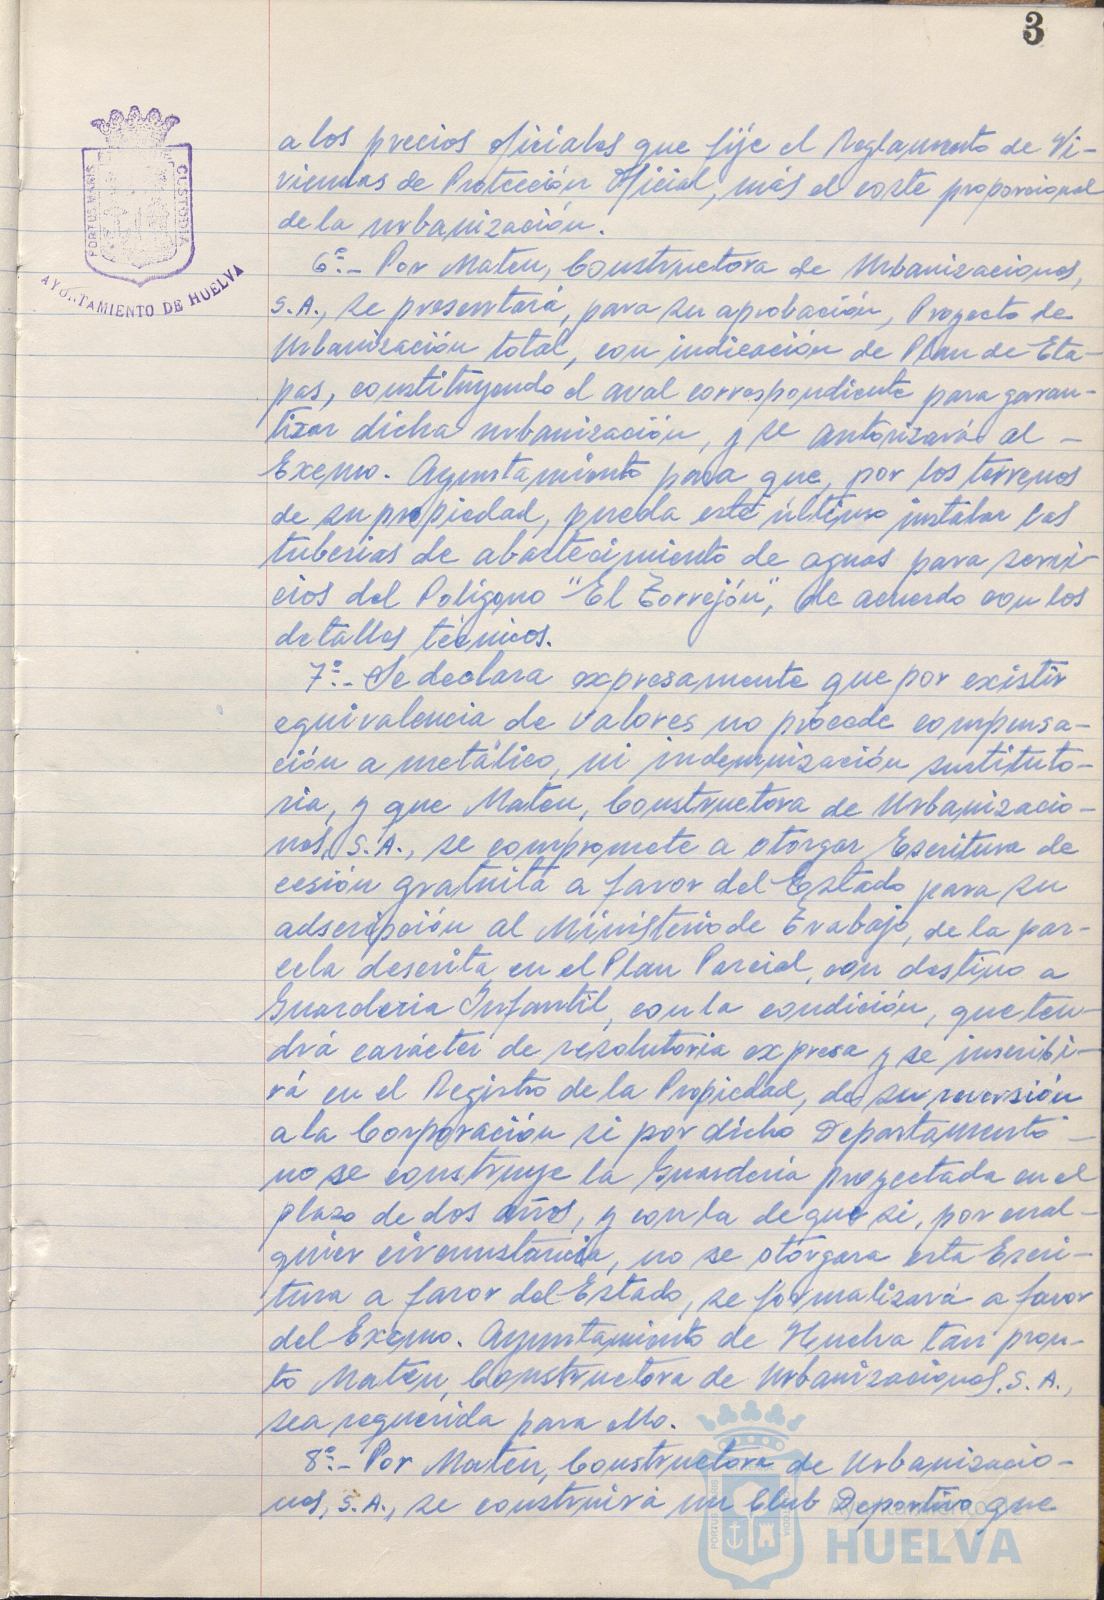 3
PORTUS MARIS
CUSTODIA
AYUNTAMIENTO DE HUELVA
a los precios oficiales que fije el Reglamento de Vi-
viendas de Protección Oficial, más el coste proporcional
de la urbanización.
6º.- Por Mateu, Constructora de Urbanizaciones,
S.A., se presentará, para su aprobación, Proyecto de
Urbanización total, con indicación de Plan de Eta-
pas, constituyendo el aval correspondiente para garan-
tizar dicha urbanización, y se autorizará al -
Excmo. Ayuntamiento para que, por los terrenos
de su propiedad, pueda este último instalar las
tuberias de abastecimiento de aguas para servi-
cios del Polígono "El Torrejón", de acuerdo con los
detalles técnicos.
7º.- Se declara expresamente que por existir
equivalencia de valores no procede compensa-
ción a metálico, ni indemnización sustituto-
ria, y que Mateu, Constructora de Urbanizacio-
nes, S.A., se compromete a otorgar Escritura de
cesión gratuita a favor del Estado para su
adscripción al Ministerio de Trabajo, de la par-
cela descrita en el Plan Parcial, con destino a
Guarderia Infantil, con la condición, que ten-
drá carácter de resolutoria expresa y se inscribi-
rá en el Registro de la Propiedad, de su reversión
a la Corporación si por dicho Departamento -
no se construye la Guardería proyectada en el
plazo de dos años, y con la de que si, por cual-
quier circunstancia, no se otorgara esta Escri-
tura a favor del Estado, se formalizará a favor
del Excmo. Ayuntamiento de Huelva tan pron-
to Mateu, Constructora de Urbanizaciones, S.A.,
sea requerida para ello.
8º.- Por Mateu, Constructora de Urbanizacio-
nes, S.A., se construirá un Club Deportivo que
PORTUS MARIS
CUSTODIA
Ayuntamiento de
HUELVA